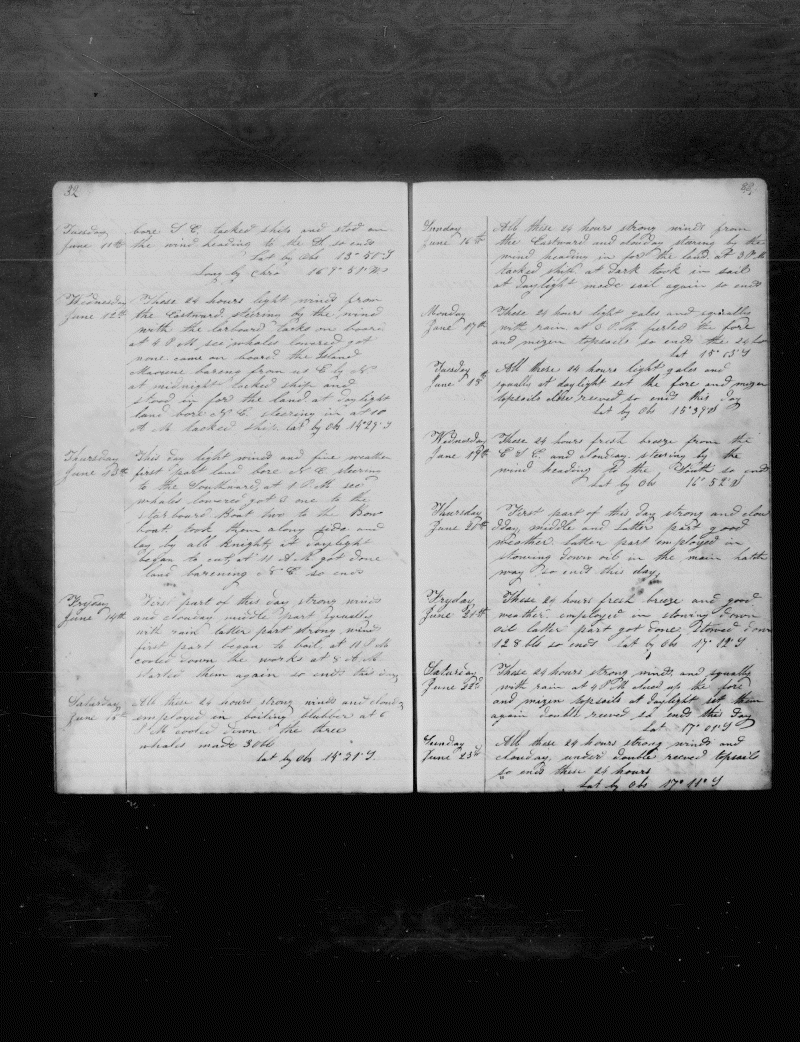 32
Tuesday bore S E, tacked ship and stood on
June 11th the wind heading to the N, so ends
Lat by Obs 15° 51' S
Long by Chro 167° 51' W
Wednesday These 24 hours light winds from
June 12th the Eastward, steering by the wind
with the larboard tacks on board
at 4 P M see whales lowered got
none came on board the Island
baring from us E by N
at midnight tacked ship and
stood in for the land at daylight
land bore N E steering in at 10
A M tacked ship lat by Obs 14° 29' S
Thursday This day light winds and fine weather
June 13th first part land bore N E steering
to the Southward at 1 P M see
whales lowered got one to the
starboard Boat two to the Bow
boat took them along side and
lay by all Knight, At daylight
began to cut, at 11 A M got done
land barening N E so ends
Fryday First part of this day strong winds
June 14th and clouday middle part squally
with rain latter part strong wind
first part began to boil, at 11 P M
cooled down the works at 8 A M
started them again so ends this day
Saturday All these 24 hours strong winds and clouday
June 15th employed in boiling blubber at 6
P M cooled down the three
whales made 30 bbls
Lat by Obs 15° 21' S
33
Sunday All these 24 hours strong winds from
June 16th the Eastward and clouday staring by the
wind heading in for the land at 3 P M
tacked ship at dark took in sail
at daylight made sail again so ends
Monday These 24 hours light gales and squalls
June 17th with rain at P M furled the fore
and mizen topsails so ends the 24 hou
Lat 15° 13' S
Tuesday All these 24 hours light gales and
June 18th squals at daylight set the fore and mizen
topsails close reeved so ends this day
Lat by Obs 15° 39' S
Wednesday These 24 hours fresh breeze from the
June 19th E S E and clouday, steering by the
wind heading to the South so ends
Lat by Obs 16° 52' S
Thursday First part of this day strong and clou
June 20th dday, middle and latter part good
weather latter part employed in
stowing down oil in the main hatch
way so ends this day,
Fryday These 24 hours fresh breeze and good
June 21th weather employed in stowing down
oil latter part got done, stowed down
128 bbls so ends Lat by Obs 17° 12' S
Saturday These 24 hours strong winds and squally
June 22d with rain at 4 P M clued up the fore
and mizen topsails at daylight set them
again double reeved so ends this day
Lat 17° 01' S
Sunday All these 24 hours strong winds and
June 23d clouday, under double reeved topsails
so ends these 24 hours
Lat by Obs 17° 11' S